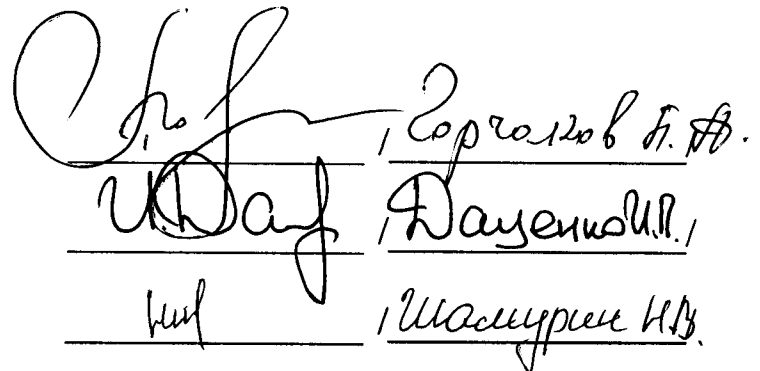 / Горчаков А. А.
И.Дац / Даценко И.П. /
/ Шамурин Н.В.